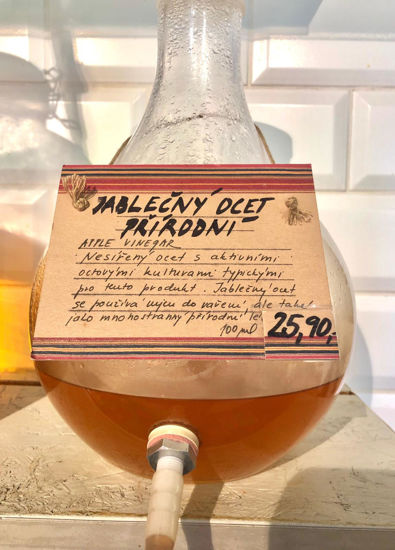 JABLEČNÝ OCET
PŘÍRODNÍ
APPLE VINEGAR
Nesířený ocet s aktivními
octovými kulturami typickými
pro tento produkt. Jablečný ocet
se používá nejen do vaření, ale také
jako mnohostranný přírodní
100 ml
25,90,-